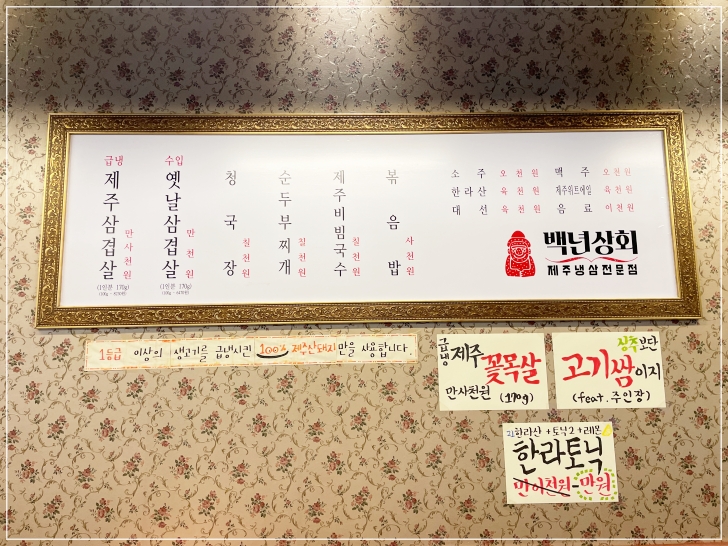 급냉
제주삼겹살
만사천원
(1인분 170g)
수입
옛날삼겹살
만천원
(1인분 170g)
청국장
칠천원
순두부찌개
칠천원
제주비빔국수
칠천원
볶음밥
사천원
소주 오천원 맥주 오천원
한라산 육천원 제주위트에일 육천원
대선 육천원 음료 이천원
백년상회
제주냉삼전문점
1등급 이상의 생고기를 급냉시킨 100% 제주산돼지만을 사용합니다
급냉 제주 꽃목살
만사천원 (170g)
상추보단
고기쌈이지
(feat. 주인장)
한라산 + 토닉2 + 레몬
한라토닉
만이천원-만원